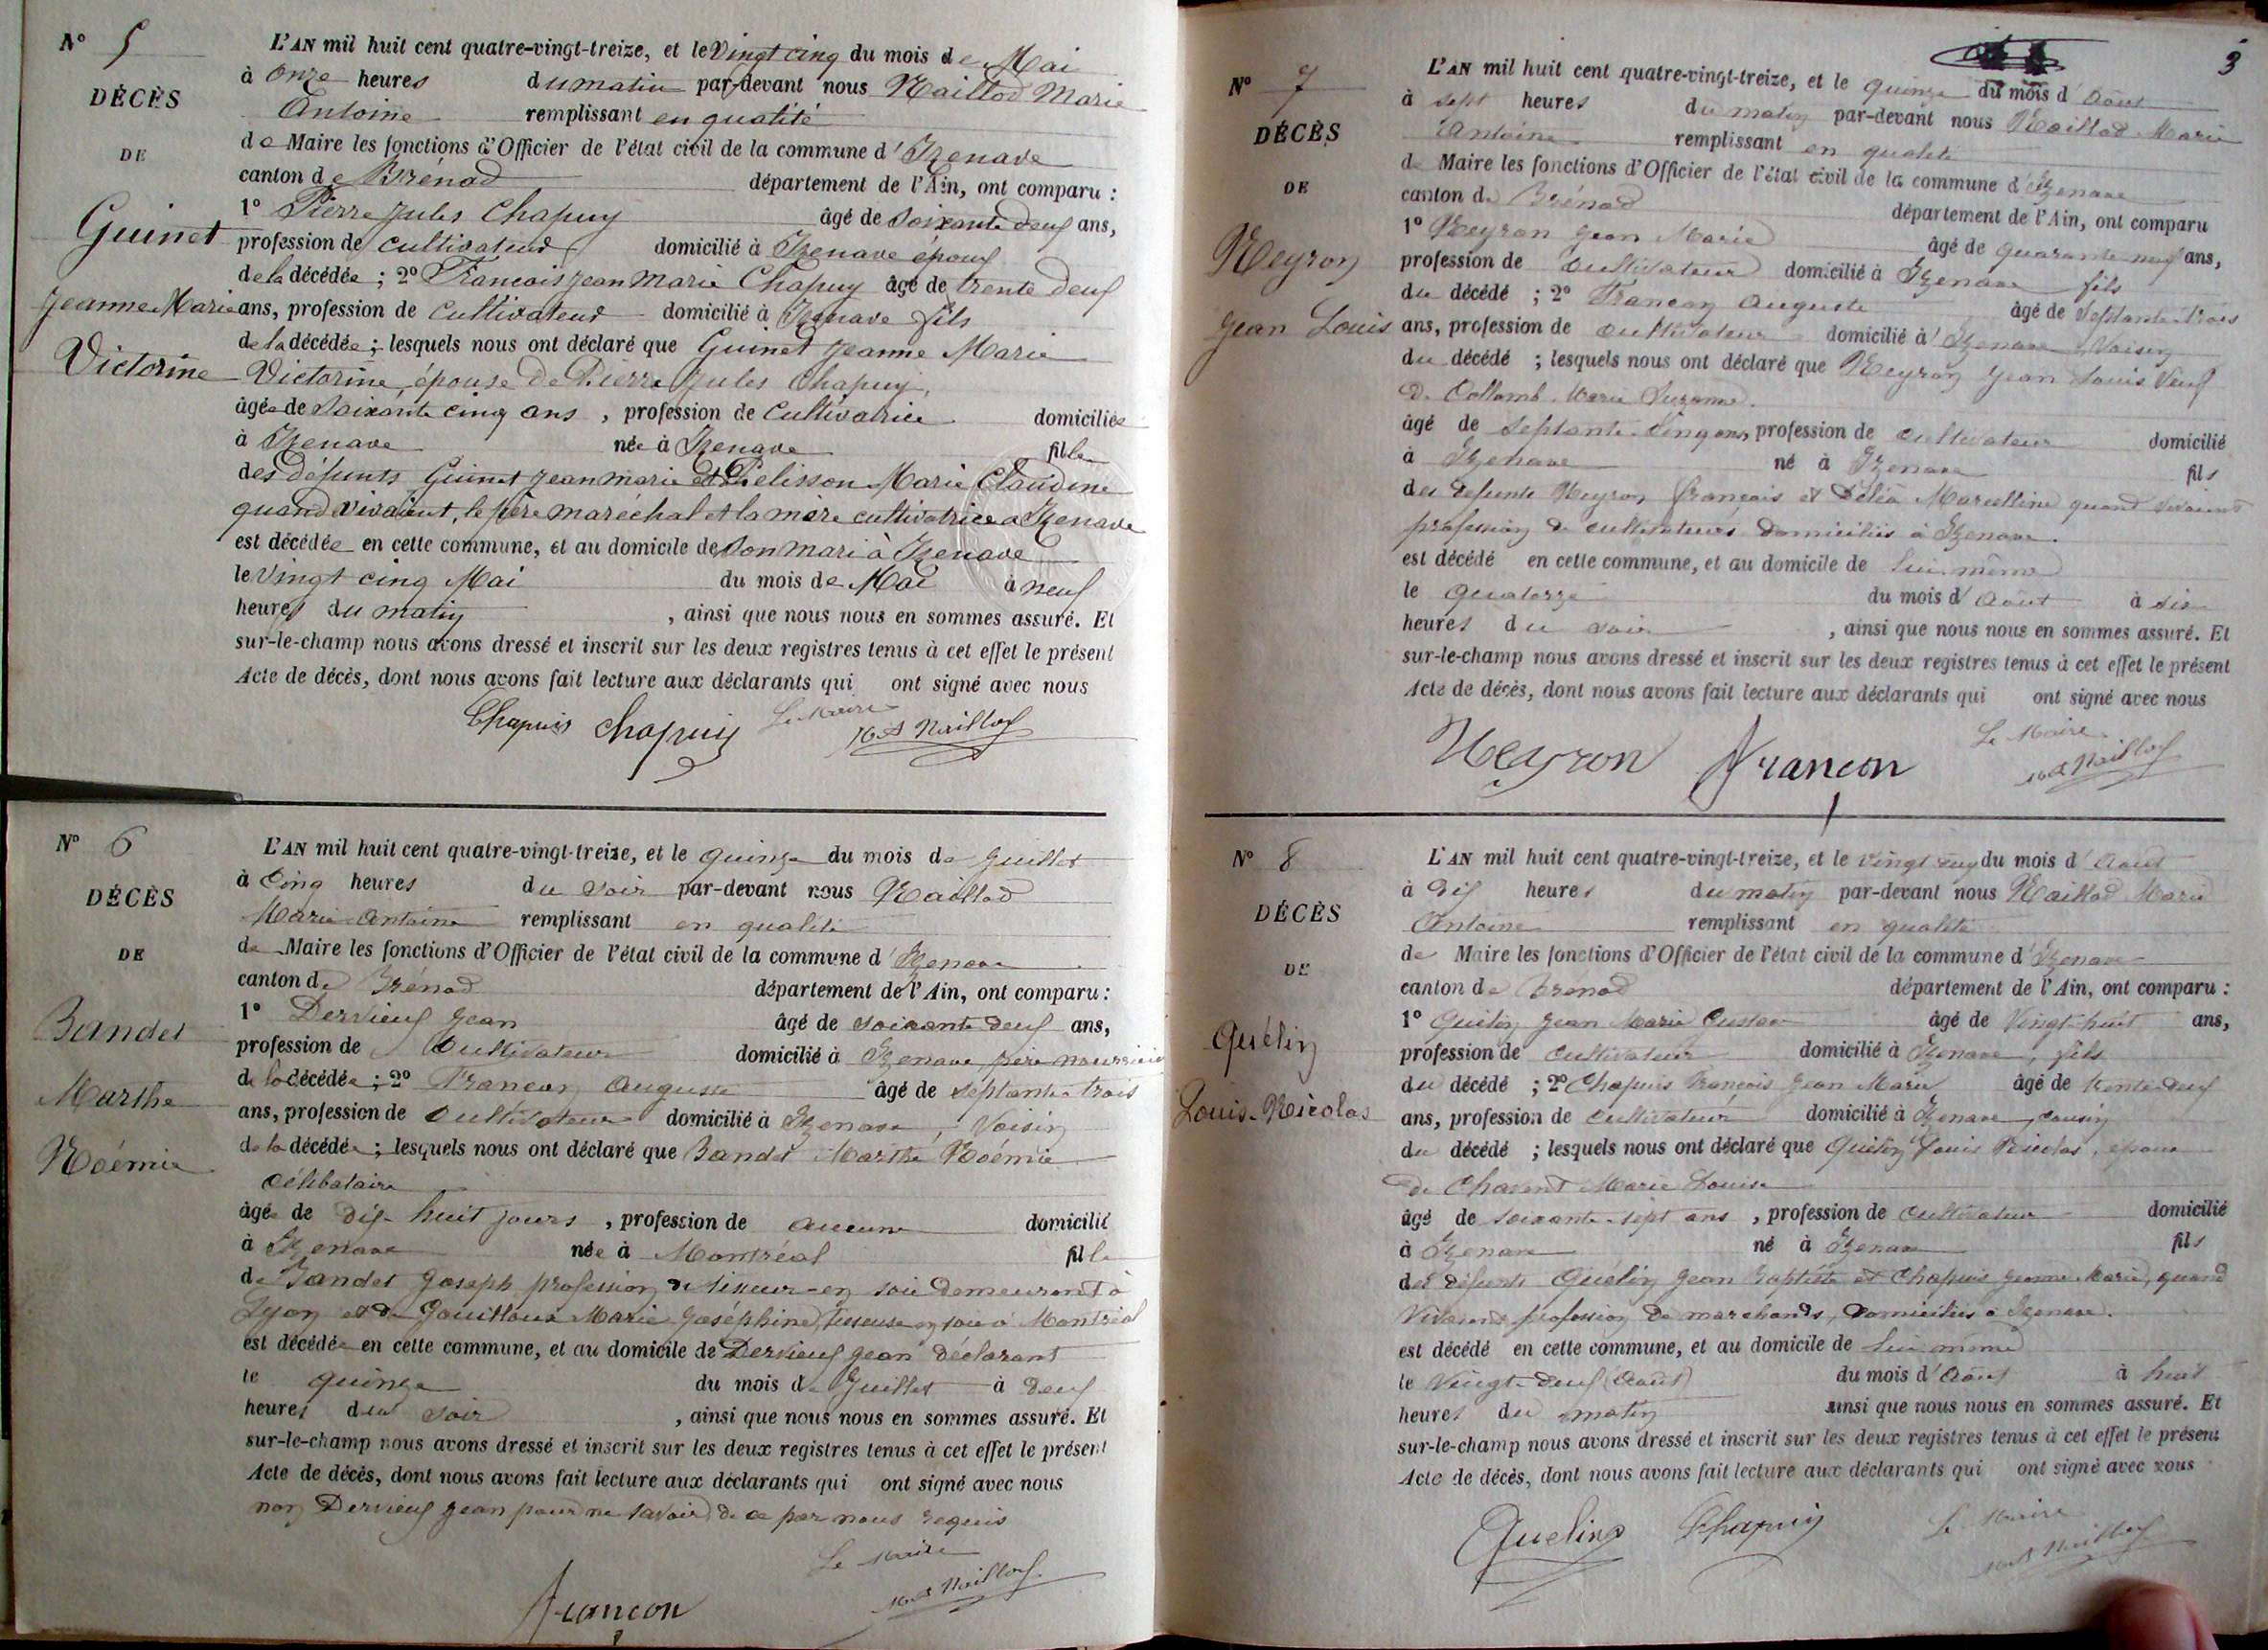 N° 5
DÉCÈS
DE
Guinet
Jeanne Marie
Victorine
L'AN mil huit cent quatre-vingt-treize, et le Vingt cinq du mois de Mai
à onze heures du matin par-devant nous Naillod Marie
Antoine remplissant en qualité
de Maire les fonctions d'Officier de l'état civil de la commune d'Izenave
canton de Brénod département de l'Ain, ont comparu :
1° Pierre Jules Chapuy âgé de soixante deux ans,
profession de cultivateur domicilié à Izenave époux
de la décédée ; 2° Francois Jean Marie Chapuy âgé de trente deux
ans, profession de cultivateur domicilié à Izenave fils
de la décédée ; lesquels nous ont déclaré que Guinet Jeanne Marie
Victorine, épouse de Pierre Jules Chapuy,
âgée de soixante cinq ans , profession de cultivatrice domiciliée
à Izenave née à Izenave fille
des défunts Guinet Jean Marie et Pelisson Marie Claudine
quand vivaient, le père maréchal et la mère cultivatrice a Izenave
est décédée en cette commune, et au domicile de son mari à Izenave
le Vingt cinq Mai du mois de Mai à neuf
heures du matin , ainsi que nous nous en sommes assuré. Et
sur-le-champ nous avons dressé et inscrit sur les deux registres tenus à cet effet le présent
Acte de décès, dont nous avons fait lecture aux déclarants qui ont signé avec nous
Chapuis Chapuis Le Maire
M A Naillod
N° 6
DÉCÈS
DE
Bandet
Marthe
Noémie
L'AN mil huit cent quatre-vingt-treize, et le quinze du mois de Juillet
à cinq heures du soir par-devant nous Naillod
Marie Antoine remplissant en qualité
de Maire les fonctions d'Officier de l'état civil de la commune d'Izenave
canton de Brénod département de l'Ain, ont comparu :
1° Dervieux Jean âgé de soixante deux ans,
profession de cultivateur domicilié à Izenave, père nourricier
de la décédée ; 2° Francon Auguste âgé de septante-trois
ans, profession de cultivateur domicilié à Izenave, Voisin
de la décédée ; lesquels nous ont déclaré que Bandet Marthe Noémie
célibataire
âgée de dix-huit jours , profession de aucune domicilié
à Izenave née à Montréal fille
de Bandet Joseph profession de tisseur en soie demeurant à
Lyon et de Gouilloux Marie Joséphine, tisseuse en soie à Montréal
est décédée en cette commune, et au domicile de Dervieux Jean déclarant
le quinze du mois de Juillet à deux
heures du soir , ainsi que nous nous en sommes assuré. Et
sur-le-champ nous avons dressé et inscrit sur les deux registres tenus à cet effet le présent
Acte de décès, dont nous avons fait lecture aux déclarants qui ont signé avec nous
non Dervieux Jean pour ne savoir de ce par nous requis
Le Maire
francon M A Naillod
3
N° 7
DÉCÈS
DE
Neyron
Jean Louis
L'AN mil huit cent quatre-vingt-treize, et le quinze du mois d'Août
à sept heures du matin par-devant nous Naillod Marie
Antoine remplissant en qualité
de Maire les fonctions d'Officier de l'état civil de la commune d'Izenave
canton de Brénod département de l'Ain, ont comparu
1° Neyron Jean Marie âgé de quarante neuf ans,
profession de cultivateur domicilié à Izenave fils
du décédé ; 2° Francon Auguste âgé de septante-trois
ans, profession de cultivateur domicilié à Izenave, Voisin
du décédé ; lesquels nous ont déclaré que Neyron Jean Louis Veuf
de Collomb Marie Suzanne.
âgé de septante-cinq ans, profession de cultivateur domicilié
à Izenave né à Izenave fils
des défunts Neyron français et Marcelline quand vivaient
profession de cultivateurs domiciliés à Izenave.
est décédé en cette commune, et au domicile de lui-même
le quatorze du mois d'Août à six
heures du soir , ainsi que nous nous en sommes assuré. Et
sur-le-champ nous avons dressé et inscrit sur les deux registres tenus à cet effet le présent
Acte de décès, dont nous avons fait lecture aux déclarants qui ont signé avec nous
Neyron francon Le Maire
M A Naillod
N° 8
DÉCÈS
DE
Quélin
Louis-Nicolas
L'AN mil huit cent quatre-vingt-treize, et le vingt deux du mois d'Août
à dix heures du matin par-devant nous Naillod Marie
Antoine remplissant en qualité
de Maire les fonctions d'Officier de l'état civil de la commune d'Izenave
canton de Brenod département de l'Ain, ont comparu :
1° Quélin Jean Marie Gustave âgé de Vingt-huit ans,
profession de cultivateur domicilié à Izenave, fils
du décédé ; 2° Chapuis François Jean Marie âgé de trente-deux
ans, profession de cultivateur domicilié à Izenave, cousin
du décédé ; lesquels nous ont déclaré que Quélin Louis Nicolas, époux
de Chavent Marie Louise
âgé de soixante-sept ans , profession de cultivateur domicilié
à Izenave né à Izenave fils
des défunts Quélin Jean Baptiste et Chapuis Jeanne Marie, quand
vivaient profession de marchands, domiciliés a Izenave.
est décédé en cette commune, et au domicile de lui même
le Vingt-deux (Août) du mois d'Août à huit
heures du matin ainsi que nous nous en sommes assuré. Et
sur-le-champ nous avons dressé et inscrit sur les deux registres tenus à cet effet le présent
Acte de décès, dont nous avons fait lecture aux déclarants qui ont signé avec nous
Quelin Chapuis Le Maire
M A Naillod